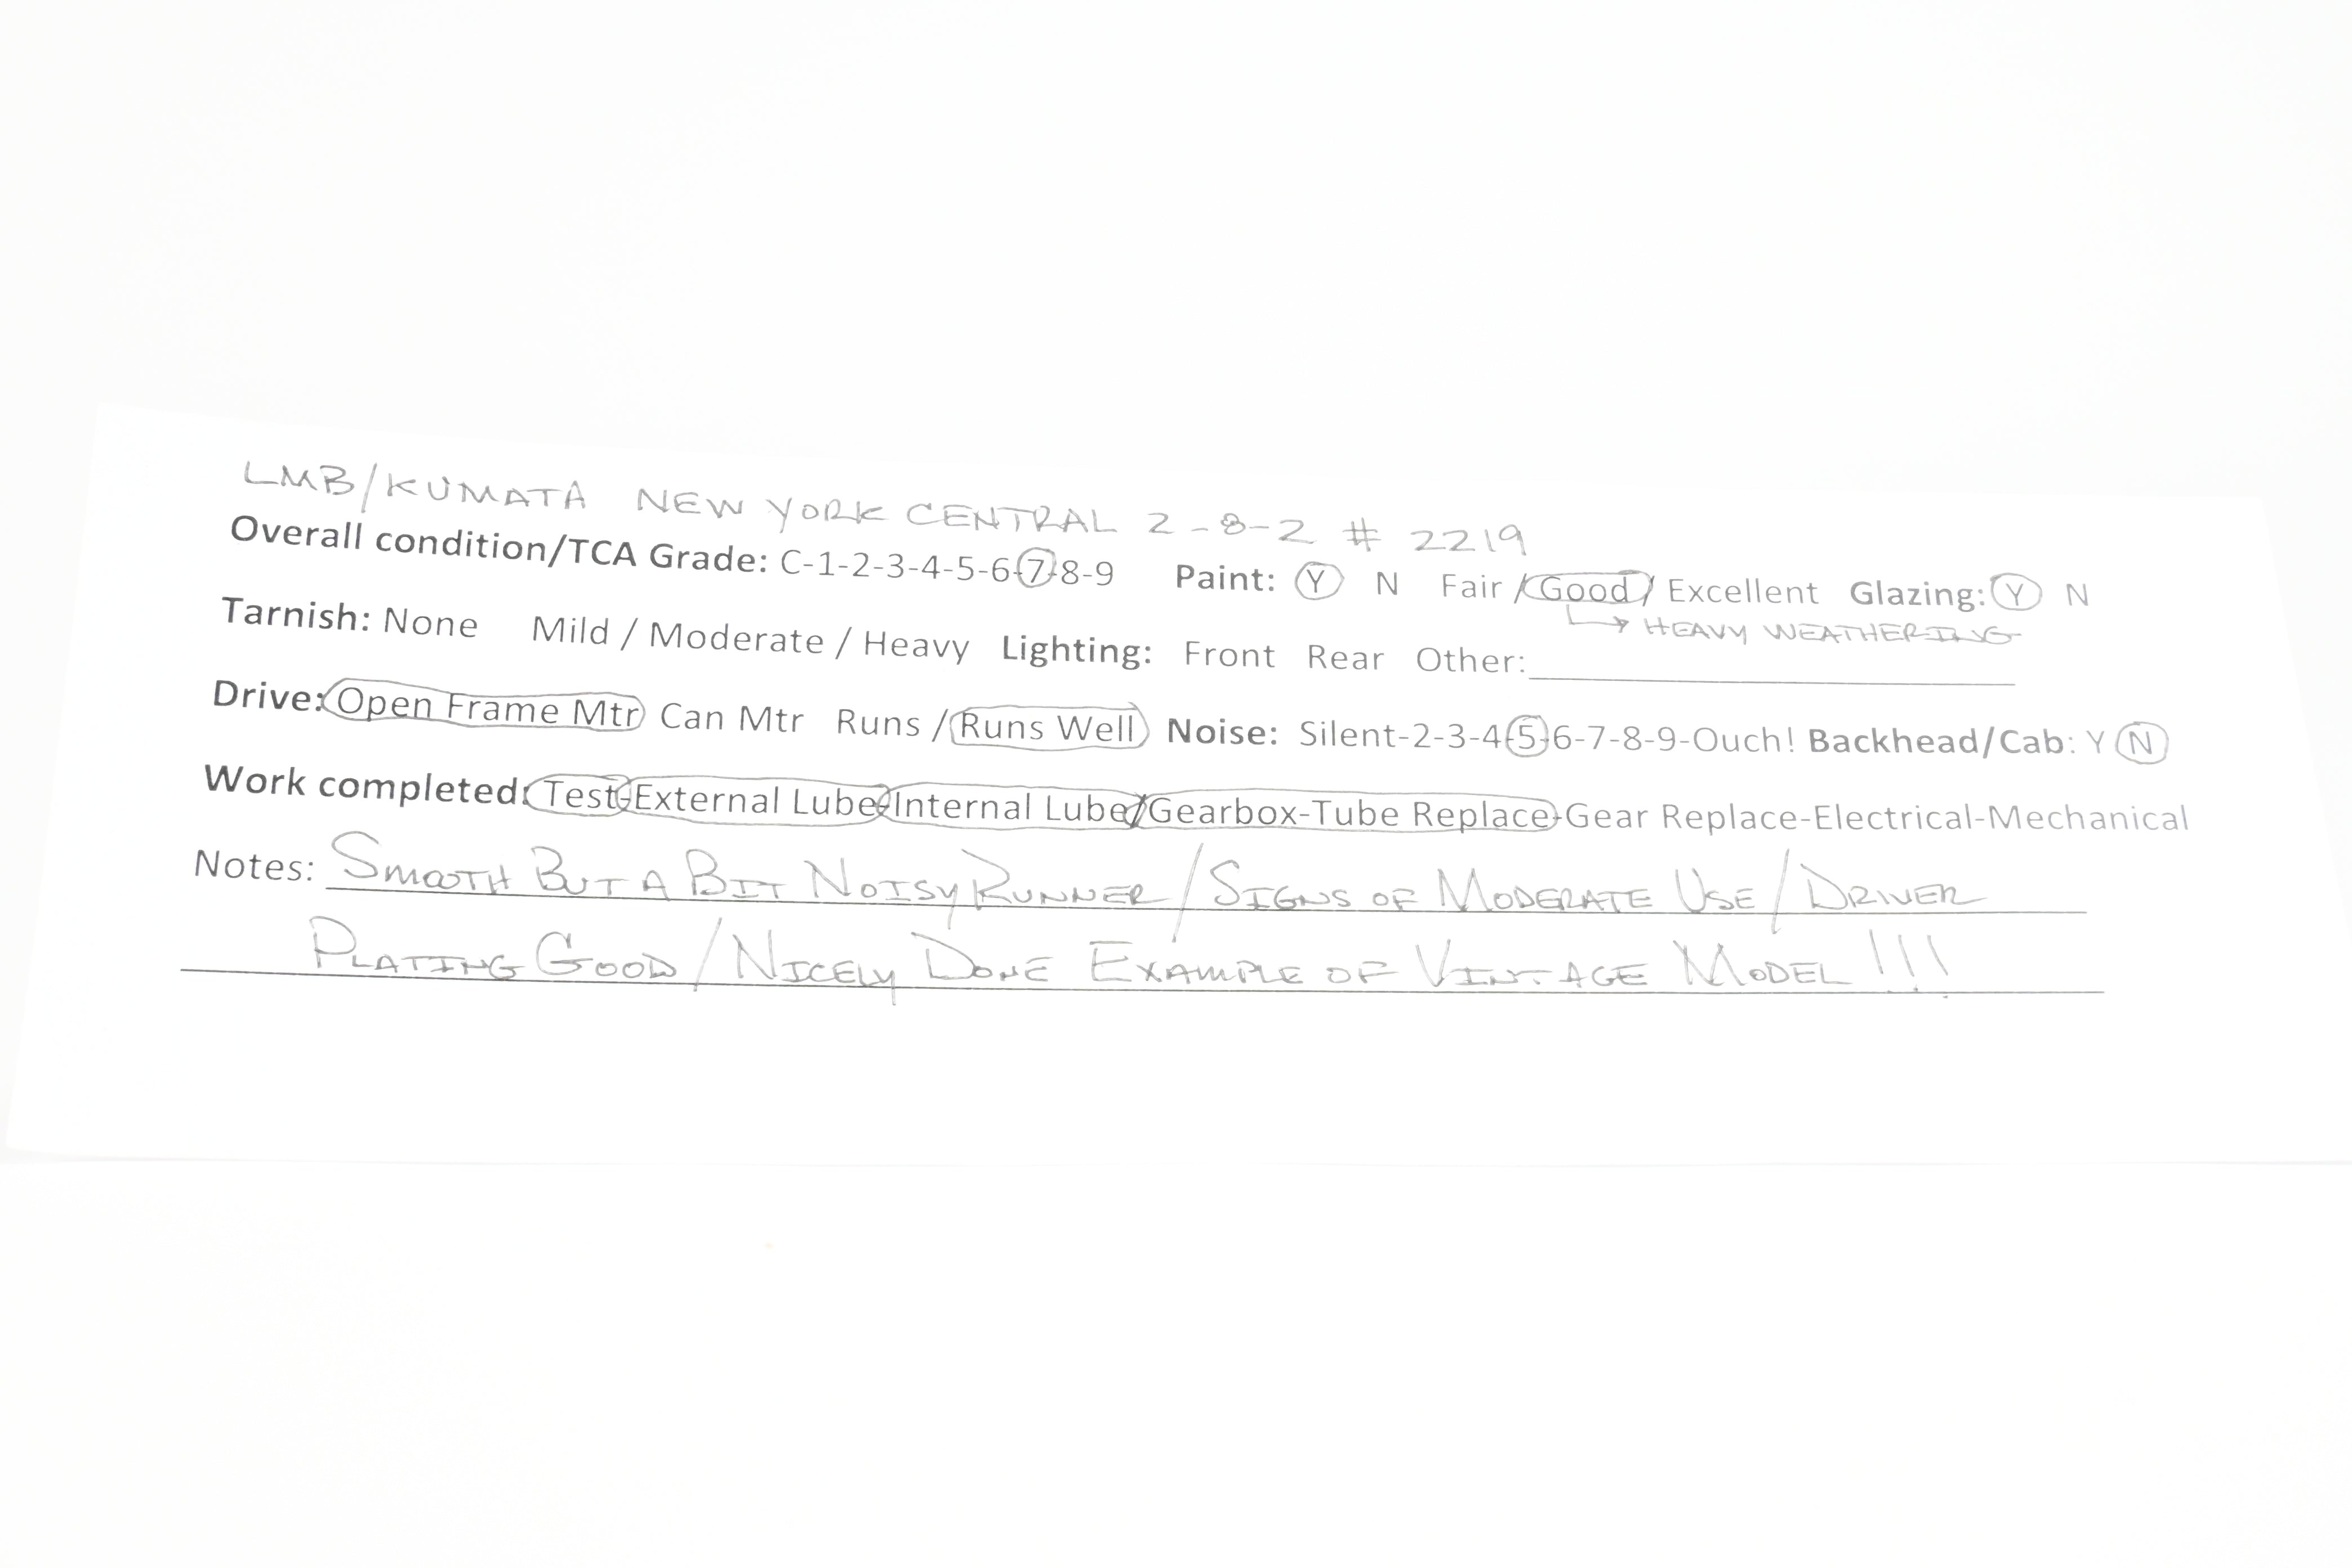 LMB/KUMATA NEW YORK CENTRAL 2-8-2 # 2219
Overall condition/TCA Grade: C-1-2-3-4-5-6-7-8-9 Paint: Y N Fair / Good / Excellent Glazing: Y N
HEAVY WEATHERING
Tarnish: None Mild / Moderate / Heavy Lighting: Front Rear Other:
Drive: Open Frame Mtr Can Mtr Runs / Runs Well Noise: Silent-2-3-4-5-6-7-8-9-Ouch! Backhead/Cab: Y N
Work completed: Test-External Lube-Internal Lube/Gearbox-Tube Replace-Gear Replace-Electrical-Mechanical
Notes: SMOOTH BUT A BIT NOISY RUNNER / SIGNS OF MODERATE USE / DRIVER
PLATING GOOD / NICELY DONE EXAMPLE OF VINTAGE MODEL!!!